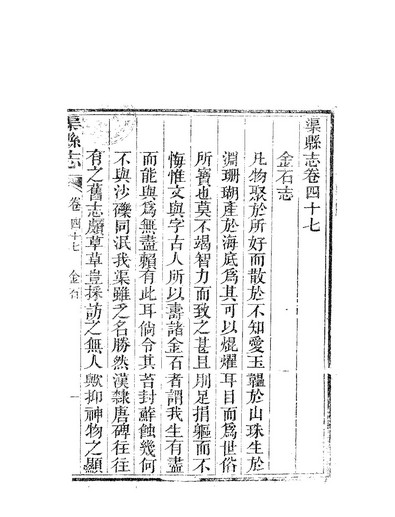 渠縣志卷四十七
金石志
凡物聚於所好而散於不知愛玉韞於山珠生於
淵珊瑚產於海底爲其可以焜燿耳目而爲世俗
所寶也莫不竭智力而致之甚且刖足捐軀而不
悔惟文與字古人所以壽諸金石者謂我生有盡
而能與爲無盡賴有此耳倘令其苔封蘚蝕幾何
不與沙礫同泯我渠雖乏名勝然漢隸唐碑往往
有之舊志頗草草豈採訪之無人歟抑神物之顯
渠縣志
卷四十七
金石
一